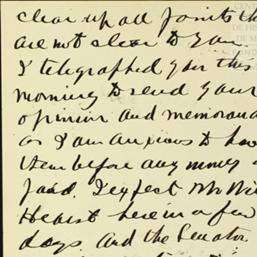 clear up all points th
are not clear to you.
I telegraphed you this
morning to send your
opinion and memorand
as I am anxious to hav
them before any money
paid. I expect Mr Wi
Hearst here in a few
days. And the Senator.